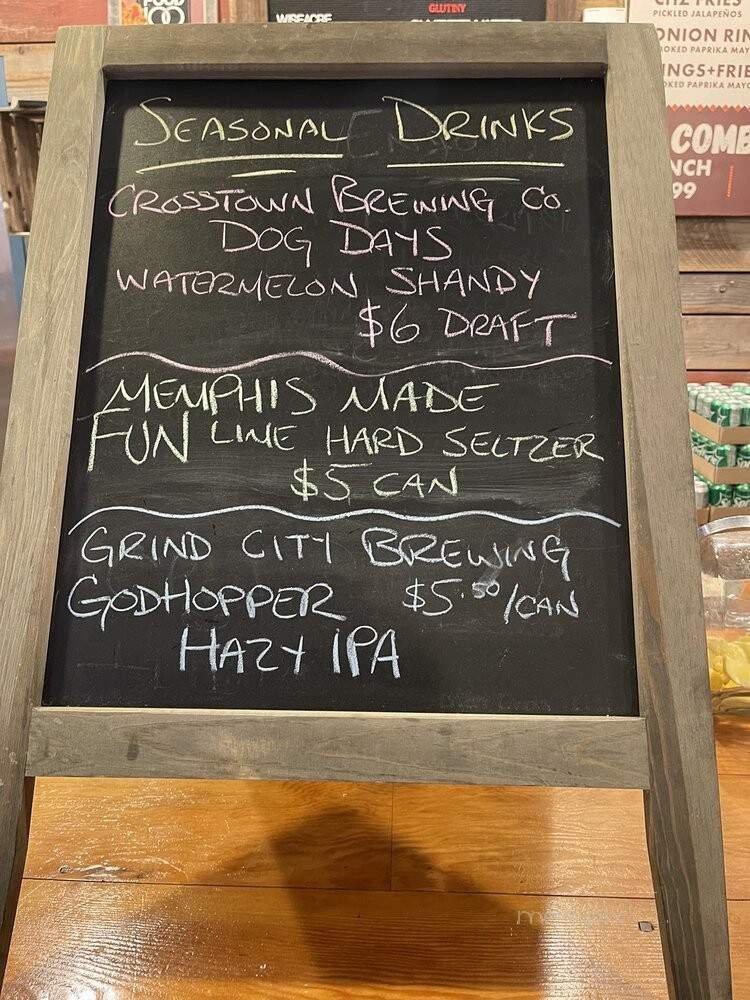 FOOD
100
WISEACRE
GLUTINY
PICKLED JALAPEÑOS
ONION RIN
OKED PAPRIKA MAY
INGS+FRIE
OKED PAPRIKA MAYO
COMB
NCH
99
SEASONAL DRINKS
CROSSTOWN BREWING CO.
DOG DAYS
WATERMELON SHANDY
$6 DRAFT
MEMPHIS MADE
FUN LIME HARD SELTZER
$5 CAN
GRIND CITY BREWING
GODHOPPER $5.50/CAN
HAZY IPA